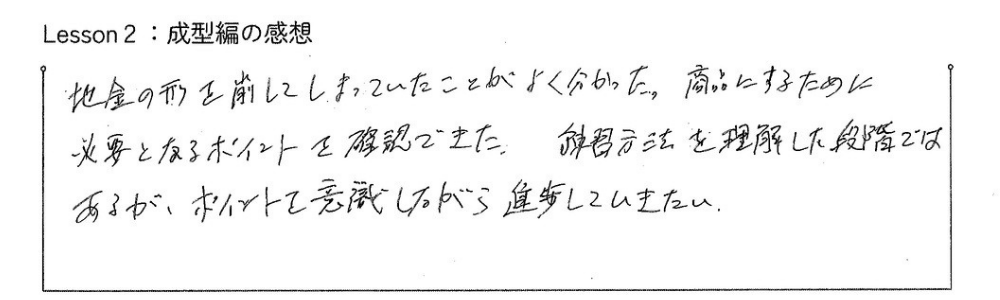 Lesson 2：成型編の感想
地金の形を崩してしまっていたことがよく分かった。商品にするために
必要となるポイントを確認できた。練習方法を理解した段階では
あるが、ポイントを意識しながら進歩していきたい。